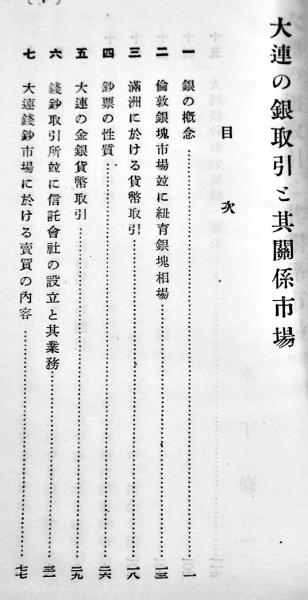 大連の銀取引と其關係市場
目次
一 銀の概念……一
二 倫敦銀塊市場竝に紐育銀塊相場……一三
三 滿洲に於ける貨幣取引……一八
四 鈔票の性質……二六
五 大連の金銀貨幣取引……二九
六 錢鈔取引所竝に信託會社の設立と其業務……三一
七 大連錢鈔市場に於ける賣買の內容……七七